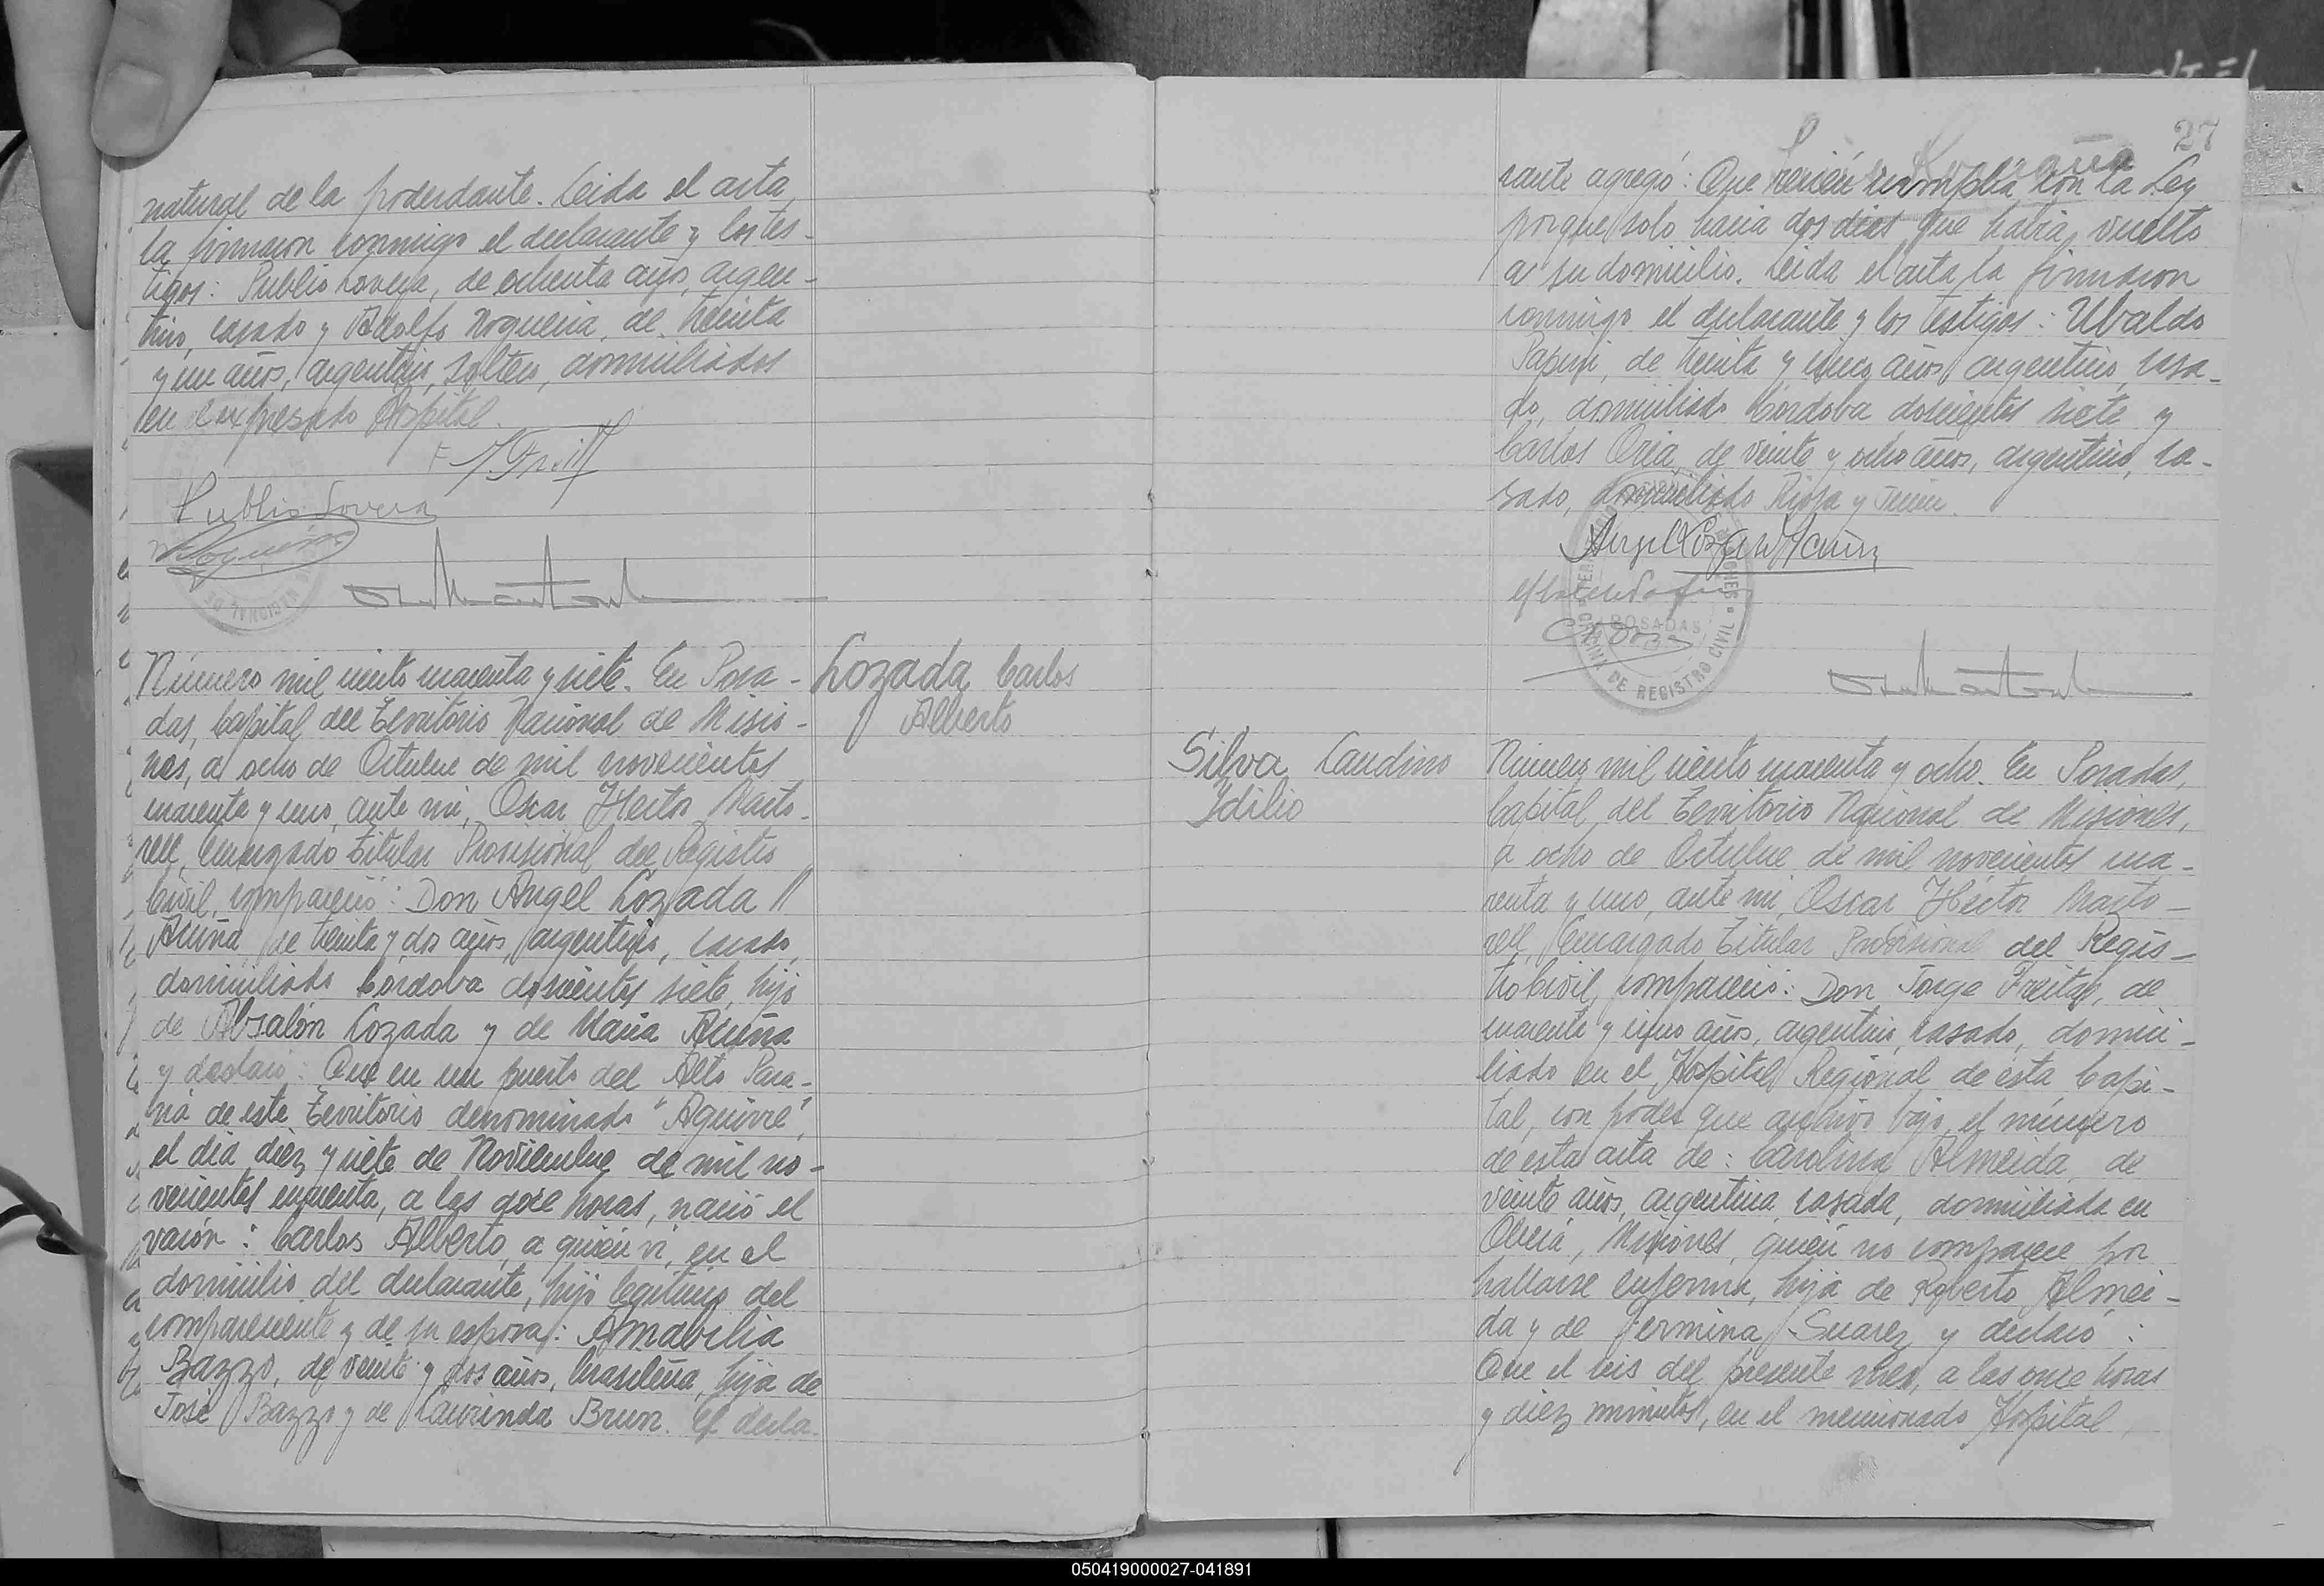 natural de la poderdante. Leida el acta,
la firmaron conmigo el declarante y los tes-
tigos: Publio Lovera, de ochenta años, argen-
tino, casado y Adolfo Noguera, de treinta
y un años, argentino, soltero, domiciliados
en el expresado Hospital.
Publio Lovera
Noguera
Número mil ciento cuarenta y siete. En Posa-
das, Capital del Territorio Nacional de Misio-
nes, a ocho de Octubre de mil novecientos
cuarenta y uno, ante mi, Oscar Hector Marto-
rell, Encargado Titular Provisional del Registro
Civil, compareció: Don Angel Lozada
Acuña, de treinta y dos años, argentino, casado,
domiciliado Córdoba doscientos siete, hijo
de Absalón Lozada y de Maria Acuña
y declaró: Que en un puerto del Alto Para-
ná de este Territorio denominado "Aguirre",
el dia diez y siete de Noviembre de mil no-
vecientos cuarenta, a las doce horas, nació el
varón: Carlos Alberto, a quién vi, en el
domicilio del declarante, hijo legitimo del
compareciente y de su esposa: Amabilia
Bazzo, de veinte y dos años, brasileña, hija de
José Bazzo y de Laurinda Brun. El decla-
Lozada Carlos
Alberto
27
rante agregó: Que recién cumplia con la Ley
porque solo hacia dos dias que habia vuelto
a su domicilio. Leida el acta, la firmaron
conmigo el declarante y los testigos: Ubaldo
Papini, de treinta y cinco años, argentino, casa-
do, domiciliado Córdoba doscientos siete y
Carlos Oria, de veinte y ocho años, argentino, ca-
sado, domiciliado Rioja y Junin.
Angel Lozada Acuña
POSADAS
DE REGISTRO CIVIL
Silva Claudino
Idilio
Número mil ciento cuarenta y ocho. En Posadas,
Capital del Territorio Nacional de Misiones,
a ocho de Octubre de mil novecientos cua-
renta y uno, ante mi, Oscar Héctor Marto-
rell, Encargado Titular Provisional del Regis-
tro Civil, compareció: Don Jorge Freitas, de
cuarenta y cinco años, argentino, casado, domici-
liado en el Hospital Regional de esta Capi-
tal, con poder que archivo bajo el número
de esta acta de: Carolina Almeida, de
veinte años, argentina, casada, domiciliada en
Oberá, Misiones, quién no comparece por
hallarse enferma, hija de Roberto Almei-
da y de Fermina Suarez y declaró:
Que el seis del presente mes, a las once horas
y diez minutos, en el mencionado Hospital,
050419000027-041891